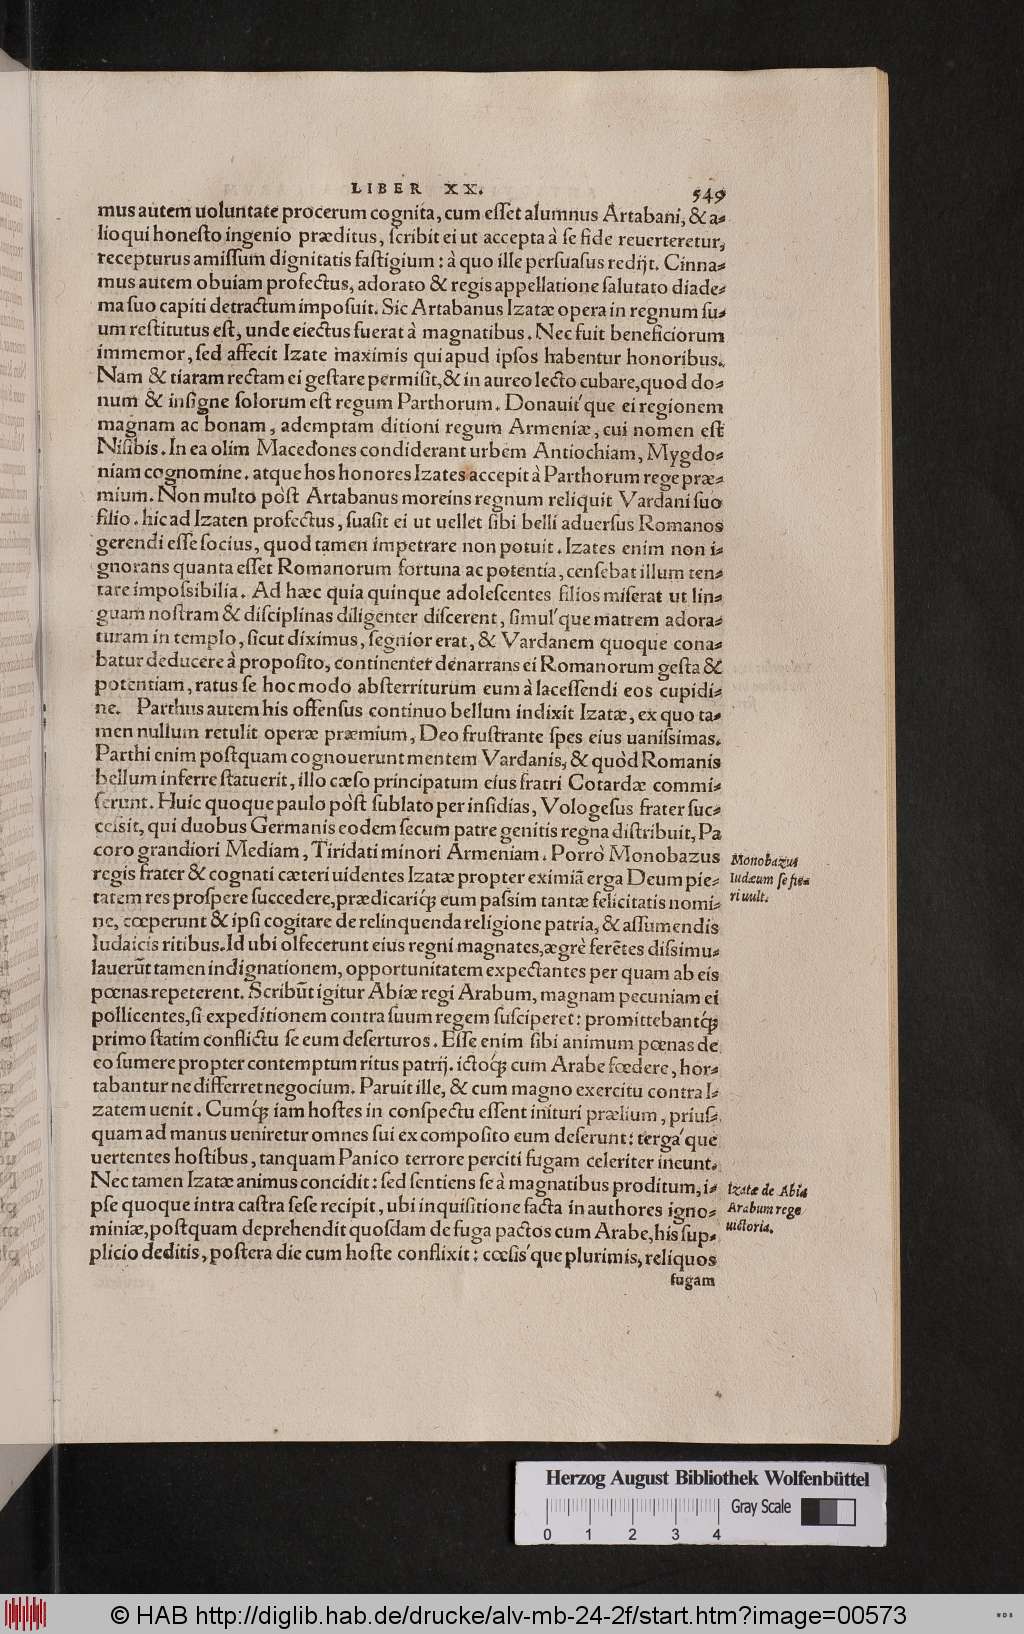 LIBER XX.
549
mus autem uoluntate procerum cognita, cum eſſet alumnus Artabani, & a-
lioqui honeſto ingenio præditus, ſcribit ei ut accepta à ſe fide reuerteretur,
recepturus amiſſum dignitatis faſtigium: à quo ille perſuaſus redijt. Cinna-
mus autem obuiam profectus, adorato & regis appellatione ſalutato diade-
ma ſuo capiti detractum impoſuit. Sic Artabanus Izatæ opera in regnum ſu-
um reſtitutus eſt, unde eiectus fuerat à magnatibus. Nec fuit beneficiorum
immemor, ſed affecit Izate maximis qui apud ipſos habentur honoribus.
Nam & tiaram rectam ei geſtare permiſit, & in aureo lecto cubare, quod do-
num & inſigne ſolorum eſt regum Parthorum. Donauit´que ei regionem
magnam ac bonam, ademptam ditioni regum Armeniæ, cui nomen eſt
Niſibis. In ea olim Macedones condiderant urbem Antiochiam, Mygdo-
niam cognomine. atque hos honores Izates accepit à Parthorum rege præ-
mium. Non multo pòſt Artabanus moreins regnum reliquit Vardani ſuo
filio. hic ad Izaten profectus, ſuaſit ei ut uellet ſibi belli aduerſus Romanos
gerendi eſſe ſocius, quod tamen impetrare non potuit. Izates enim non i-
gnorans quanta eſſet Romanorum fortuna ac potentia, cenſebat illum ten-
tare impoſsibilia. Ad hæc quia quinque adoleſcentes filios miſerat ut lin-
guam noſtram & diſciplinas diligenter diſcerent, ſimul´que matrem adora-
turam in templo, ſicut diximus, ſegnior erat, & Vardanem quoque cona-
batur deducere à propoſito, continenter denarrans ei Romanorum geſta &
potentiam, ratus ſe hoc modo abſterriturum eum à laceſſendi eos cupidi-
ne. Parthus autem his offenſus continuo bellum indixit Izatæ, ex quo ta-
men nullum retulit operæ præmium, Deo fruſtrante ſpes eius uaniſsimas.
Parthi enim poſtquam cognouerunt mentem Vardanis, & quòd Romanis
bellum inferre ſtatuerit, illo cæſo principatum eius fratri Cotardæ commi-
ſerunt. Huic quoque paulo pòſt ſublato per inſidias, Vologeſus frater ſuc-
ceſsit, qui duobus Germanis eodem ſecum patre genitis regna diſtribuit, Pa
coro grandiori Mediam, Tiridati minori Armeniam. Porrò Monobazus
regis frater & cognati cæteri uidentes Izatæ propter eximiã erga Deum pie-
tatem res proſpere ſuccedere, prædicariq́; eum paſsim tantæ felicitatis nomi-
ne, cœperunt & ipſi cogitare de relinquenda religione patria, & aſſumendis
Iudaicis ritibus. Id ubi olfecerunt eius regni magnates, ægrè ferẽtes diſsimu-
lauerũt tamen indignationem, opportunitatem expectantes per quam ab eis
pœnas repeterent. Scribũt igitur Abiæ regi Arabum, magnam pecuniam ei
pollicentes, ſi expeditionem contra ſuum regem ſuſciperet: promittebantq́;
primo ſtatim conflictu ſe eum deſerturos. Eſſe enim ſibi animum pœnas de
eo ſumere propter contemptum ritus patrij. ictoq́; cum Arabe fœdere, hor-
tabantur ne differret negocium. Paruit ille, & cum magno exercitu contra I-
zatem uenit. Cumq́; iam hoſtes in conſpectu eſſent inituri prælium, priuſ-
quam ad manus ueniretur omnes ſui ex compoſito eum deſerunt: terga´que
uertentes hoſtibus, tanquam Panico terrore perciti fugam celeriter ineunt.
Nec tamen Izatæ animus concidit: ſed ſentiens ſe à magnatibus proditum, i-
pſe quoque intra caſtra ſeſe recipit, ubi inquiſitione facta in authores igno-
miniæ, poſtquam deprehendit quoſdam de fuga pactos cum Arabe, his ſup-
plicio deditis, poſtera die cum hoſte conflixit: cœſis´que plurimis, reliquos
fugam
Monobazus
Iudæum ſe fie-
ri uult.
Izatæ de Abia
Arabum rege
uictoria.
Herzog August Bibliothek Wolfenbüttel
0 1 2 3 4
Gray Scale
© HAB http://diglib.hab.de/drucke/alv-mb-24-2f/start.htm?image=00573